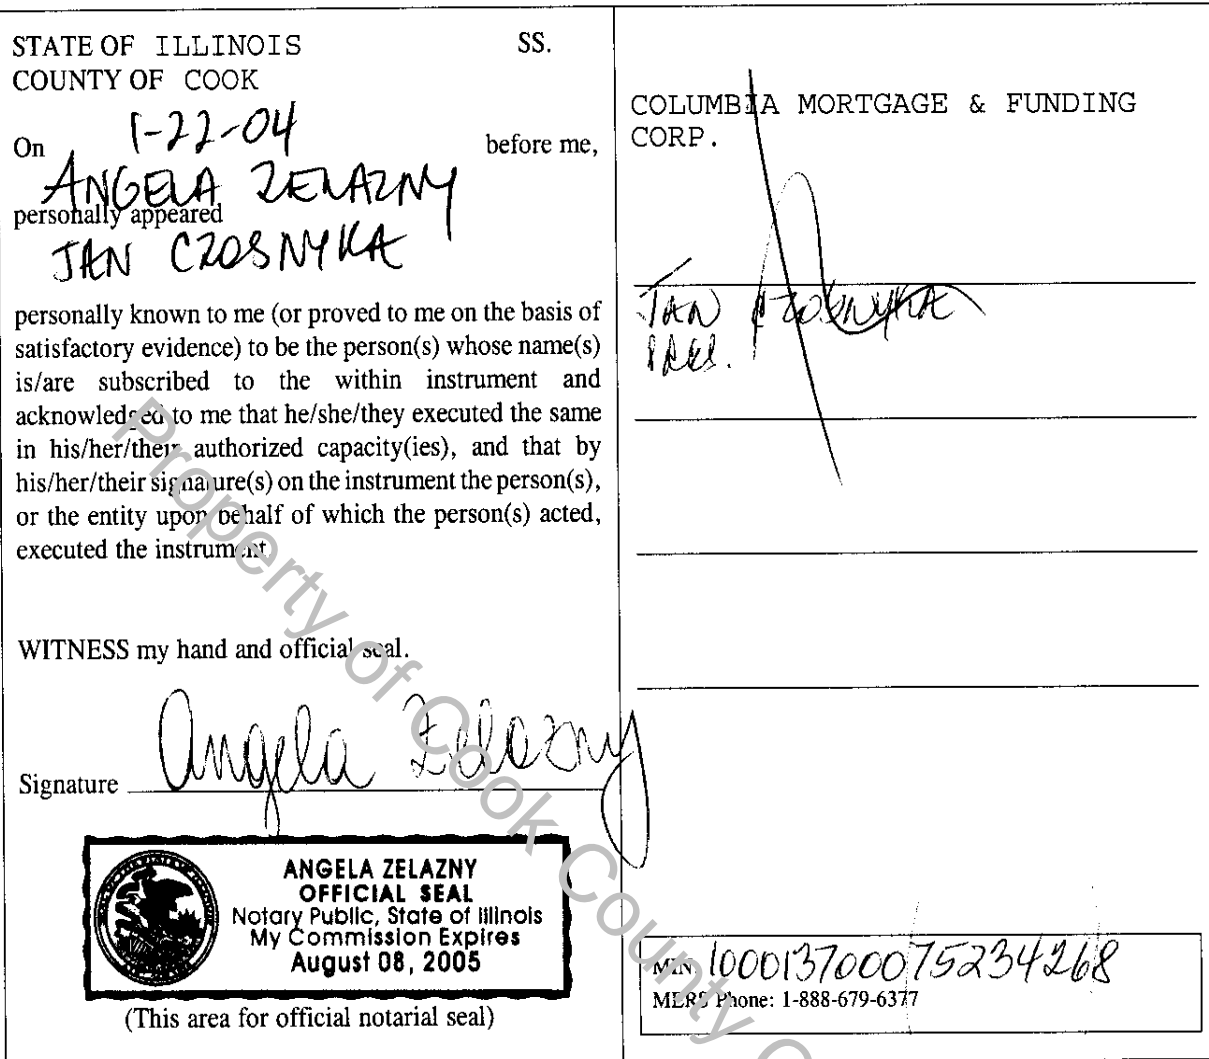 STATE OF ILLINOIS SS.
COUNTY OF COOK
On 1-22-04 before me,
ANGELA ZELAZNY
personally appeared
JAN CZOSNYKA
personally known to me (or proved to me on the basis of
satisfactory evidence) to be the person(s) whose name(s)
is/are subscribed to the within instrument and
acknowledged to me that he/she/they executed the same
in his/her/their authorized capacity(ies), and that by
his/her/their signature(s) on the instrument the person(s),
or the entity upon behalf of which the person(s) acted,
executed the instrument.
WITNESS my hand and official seal.
Signature Angela Zelazny
ANGELA ZELAZNY
OFFICIAL SEAL
Notary Public, State of Illinois
My Commission Expires
August 08, 2005
(This area for official notarial seal)
COLUMBIA MORTGAGE & FUNDING
CORP.
JAN CZOSNYKA
PRES.
MIN: 100013700075234268
MERS Phone: 1-888-679-6377
Property of Cook County